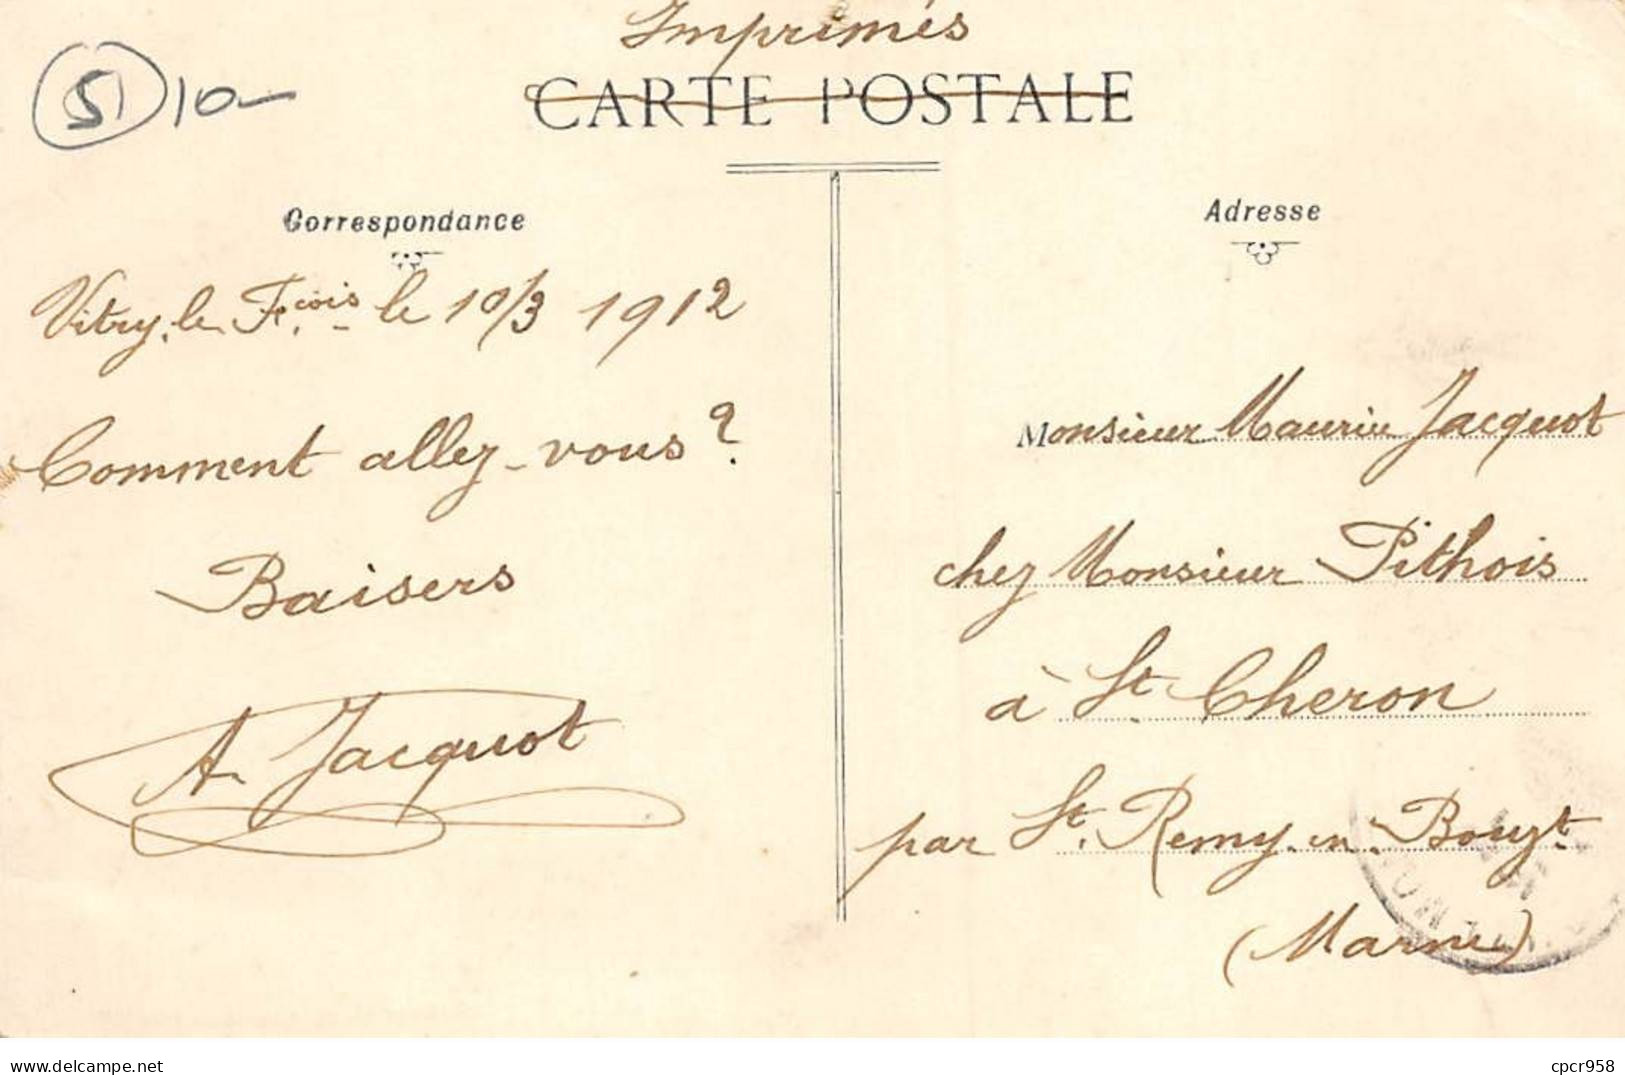 Imprimés
51 10-
CARTE POSTALE
Correspondance
Adresse
Vitry-le-Fr.çois - le 10/3 1912
Comment allez-vous ?
Baisers
A. Jacquot
Monsieur Maurice Jacquot
chez Monsieur Pithois
à St Cheron
par St. Remy-en-Bouzt.
(Marne)
delcampe.net
cpcr958